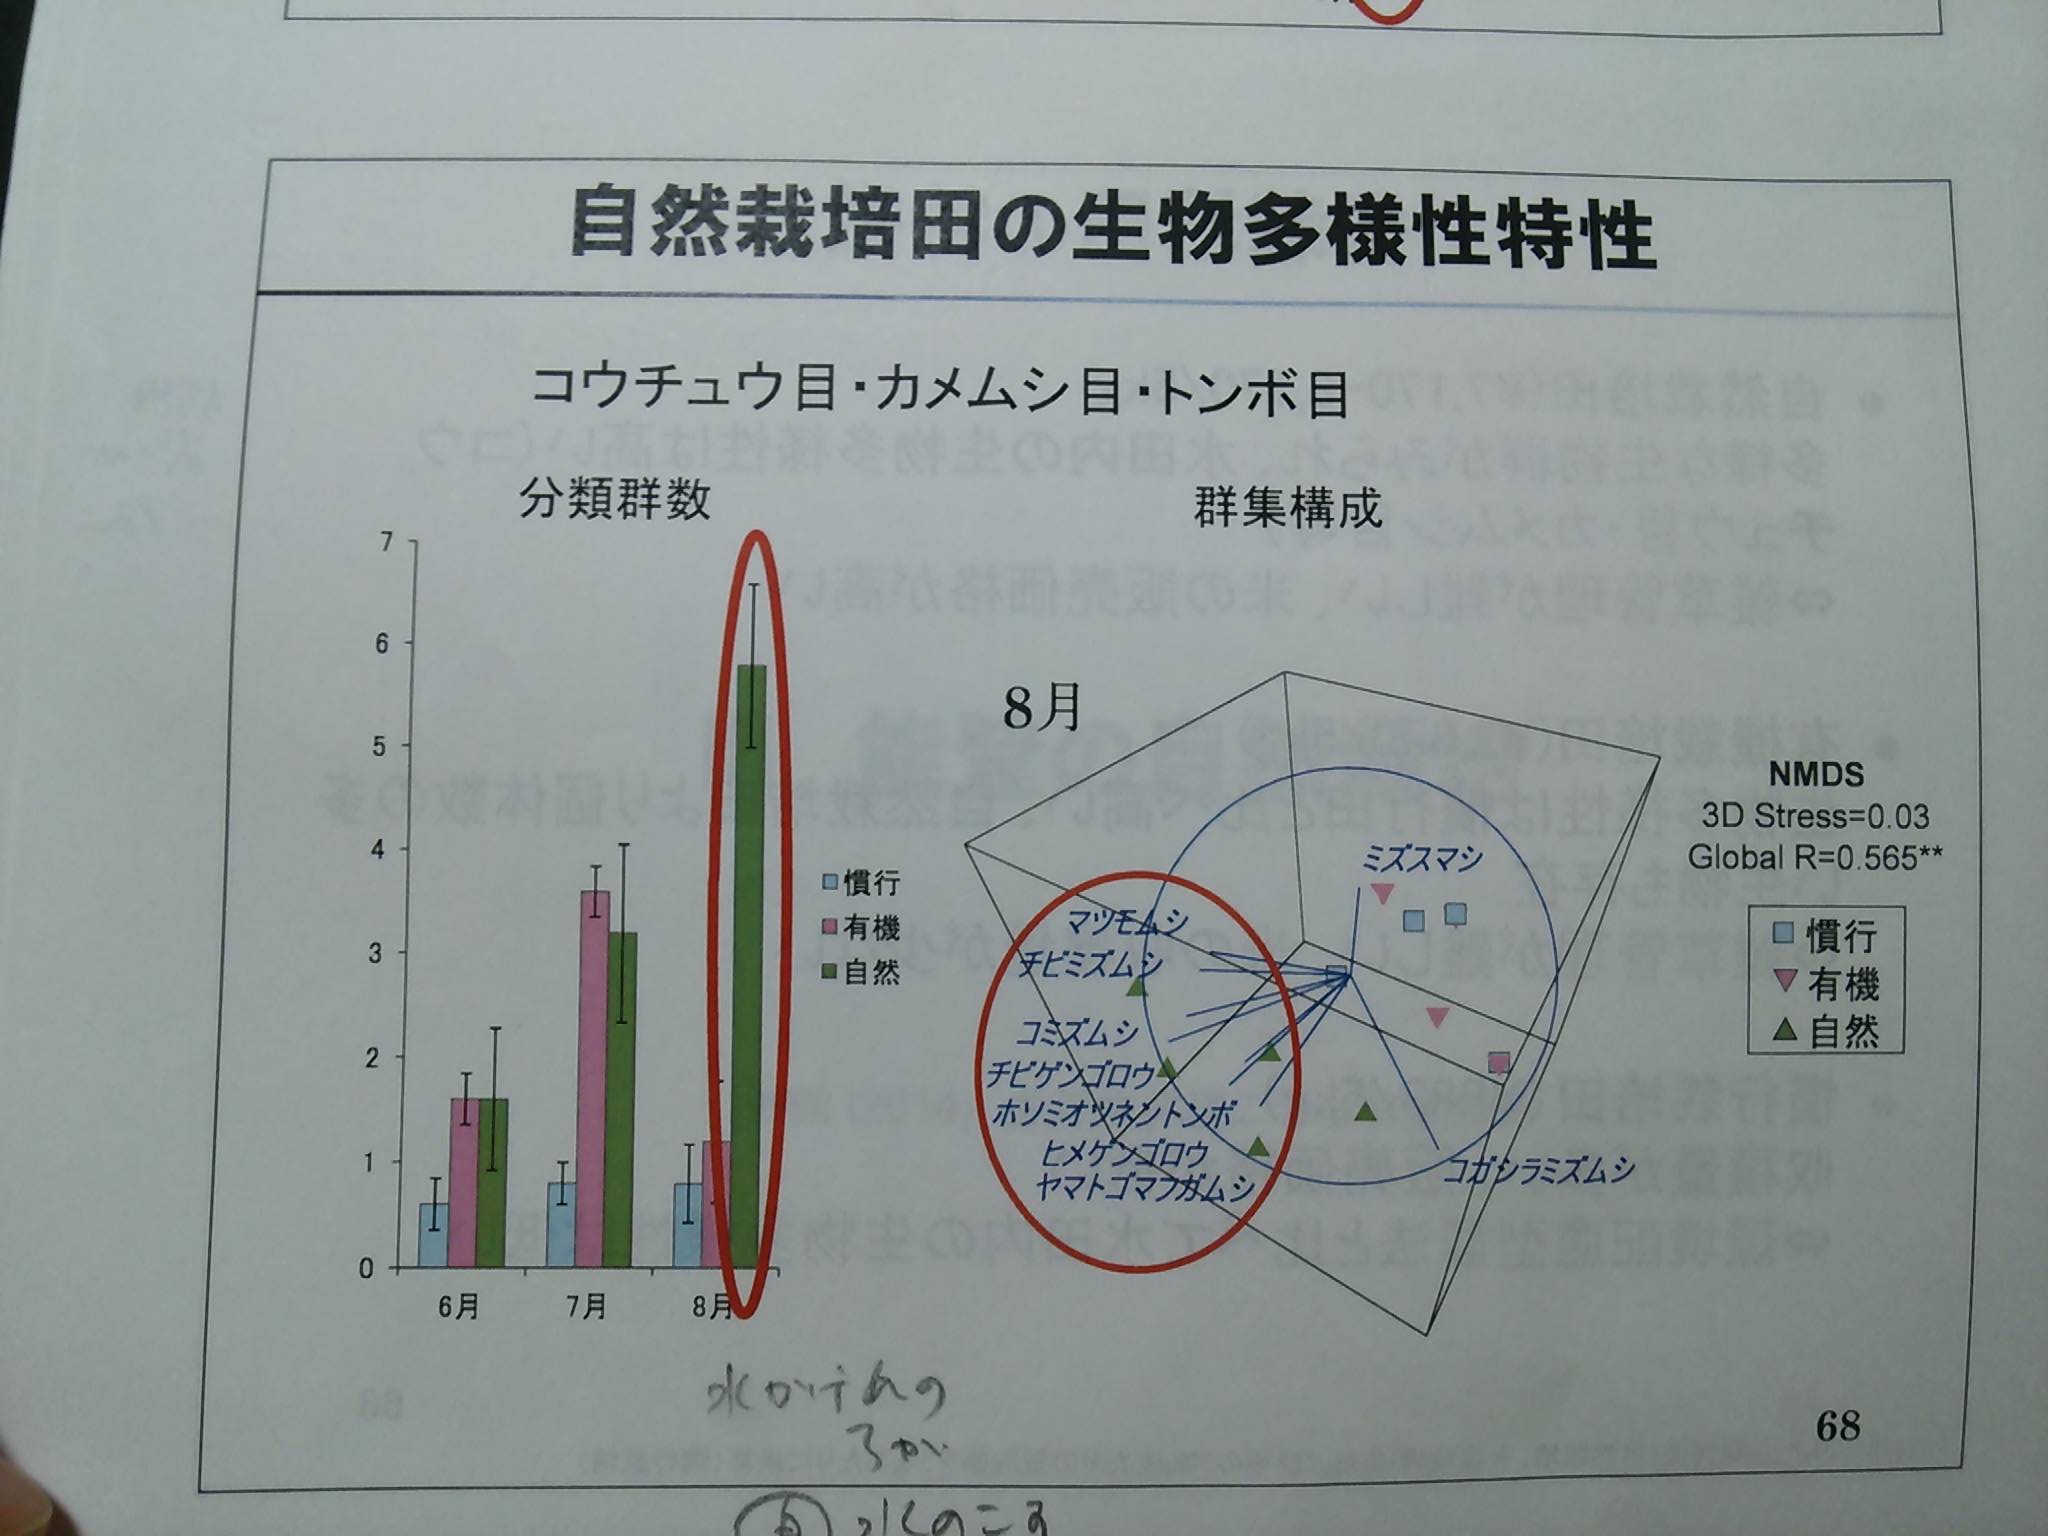 自然栽培田の生物多様性特性
コウチュウ目・カメムシ目・トンボ目
分類群数
7
6
5
4
3
2
1
0
6月
7月
8月
慣行
有機
自然
群集構成
8月
ミズスマシ
マツモムシ
チビミズムシ
コミズムシ
チビゲンゴロウ
ホソミオツネントンボ
ヒメゲンゴロウ
ヤマトゴマフガムシ
コガシラミズムシ
NMDS
3D Stress=0.03
Global R=0.565**
慣行
有機
自然
68
水のこす